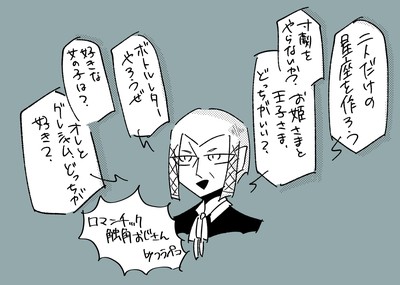 二人だけの
星座を作ろう
寸劇を
やらないか?
お姫さまと
王子さま、
どっちがいい?
ボトルレター
やろうぜ
好きな
女の子は?
オレと
ゲーム、どっちが
好き?
ロマンチック
触角おじさん